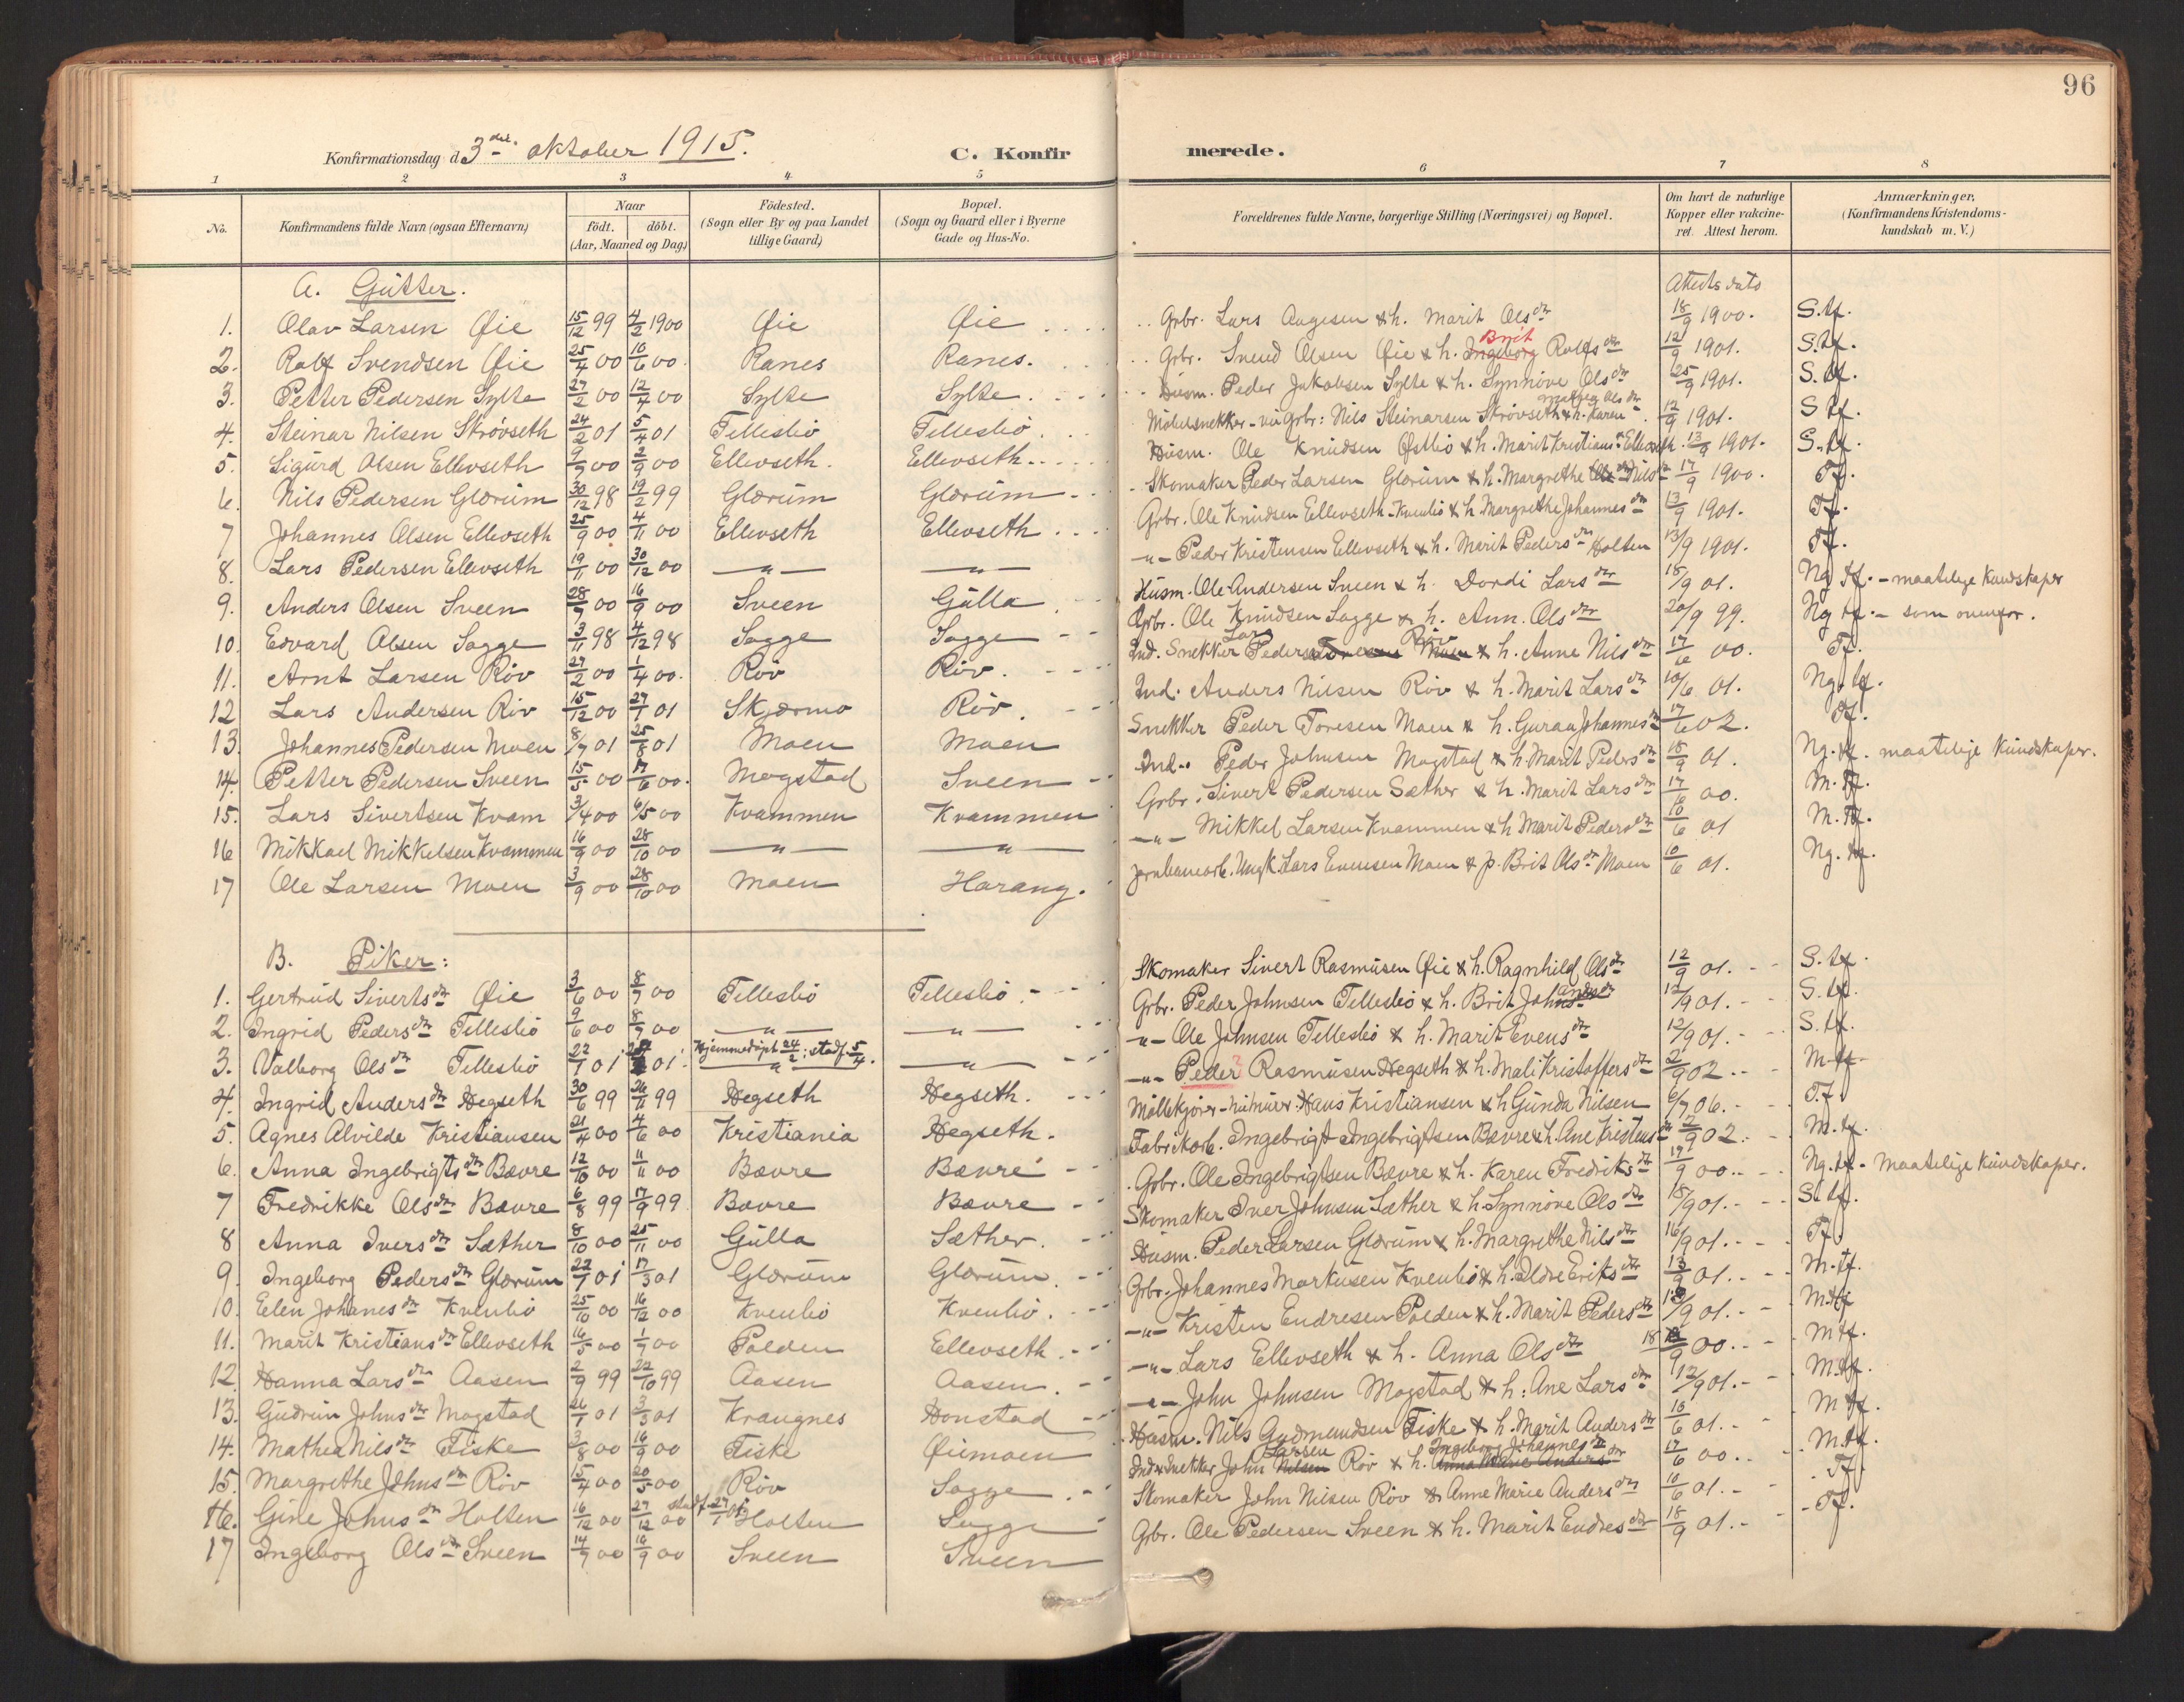 96
Konfirmationsdag d. 3die oktober 1915. C. Konfirmerede.
1 2 3 4 5 6 7 8
No. Konfirmandens fulde Navn (ogsaa Efternavn) Naar født. døbt. (Aar, Maaned og Dag.) Födested. (Sogn eller By og paa Landet tillige Gaard) Bopæl. (Sogn og Gaard eller i Byerne Gade og Hus-No. Forældrenes fulde Navne, borgerlige Stilling (Næringsvei) og Bopæl. Om havt de naturlige Kopper eller vakcineret. Attest herom. Anmærkninger. (Konfirmandens Kristendomskundskab m. V.)
A. Gutter. Attests dato
1. Olav Larsen Øie 15/12 99 4/2 1900 Øie Øie Grbr. Lars Aagesen & h. Marit Olsdtr 18/9 1900. S.tf.
2. Rolf Svendsen Øie 25/4 00 10/6 00. Ranes Ranes. Grbr. Svend Olsen Øie & h. Ingeborg Brit Rolfsdtr 12/9 1901. S.tf.
3. Petter Pedersen Sylte 27/2 00 12/4 00 Sylte Sylte. Husm. Peder Jakobsen Sylte & h. Synnöve Olsdtr 25/9 1901. S.tf.
4. Steinar Nilsen Skrövseth 24/2 01 5/4 01 Tellesbö Tellesbö. Möbelsnekker - Grbr: Nils Steinarsen Skrövseth & h. Karen Olsdtr 12/9 1901. S tf.
5. Sigurd Olsen Ellevseth 9/7 00 2/9 00 Ellevseth. Ellevseth. Husm. Ole Knudsen Østbö & h. Marit Kristiansdtr Ellevseth 13/9 1901. S.tf.
6. Nils Pedersen Glærum 30/12 98 19/2 99 Glærum Glærum Skomaker Peder Larsen Glærum & h. Margrethe Nilsdtr 17/9 1900. Tf.
7 Johannes Olsen Ellevseth 25/9 00 4/11 00 Ellevseth Ellevseth Grbr. Ole Knudsen Ellevseth - Kvenbö & h. Margrethe Johannesdtr 13/9 1901. Tf.
8. Lars Pedersen Ellevseth 19/11 00 30/12 00 —"— —"— -"- Peder Kristensen Ellevseth & h. Marit Pedersdtr Holten 13/9 1901. Tf.
9. Anders Olsen Sveen 28/7 00 16/9 00 Sveen Gulla. Husm. Ole Andersen Sveen & h. Dordi Larsdtr 18/9 01. Ng tf. - maatelige kundskaper
10. Edvard Olsen Sogge 3/11 98 4/12 98 Sogge Sogge Grbr. Ole Knudsen Sogge & h. Ann. Olsdtr 20/9 99. Ng tf. - som ovenfor.
11. Arnt Larsen Röv 27/2 00 1/4 00. Röv Röv. Ind. Snekker Lars Pedersen Toresen Moen Röv & h. Anne Nilsdtr 17/6 00. Tf.
12 Lars Andersen Röv 15/12 00 27/1 01 Skjermo Röv. Ind. Anders Nilsen Röv & h. Marit Larsdtr 10/6 01. Ng. tf.
13. Johannes Pedersen Moen 8/7 01 25/8 01 Moen Moen Snekker Peder Toresen Moen & h. Guran Johannesdtr 17/6 02. Tf.
14. Petter Pedersen Sveen 15/5 00 17/6 00. Mogstad Sveen Ind. Peder Johnsen Mogstad & h. Marit Pedersdtr 18/9 01. Ng. tf. maatelige kundskaper.
15. Lars Sivertsen Kvam 3/4 00 6/5 00 Kvammen Kvammen Grbr. Sivert Pedersen Sæther & h. Marit Larsdtr 17/6 00. M. tf.
16 Mikkael Mikkelsen Kvammen 16/9 00 28/10 00 —"— —"— —"— Mikkel Larsen Kvammen & h Marit Pedersdtr 10/6 01 M. tf.
17 Ole Larsen Moen 3/9 00 28/10 00 Moen Harang. Jernbanearb. Ungk. Lars Evensen Moen & p. Brit Olsdtr Moen 10/6 01. Ng. tf.
B. Piker:
1. Gertrud Sivertsdtr Øie 3/6 00 8/7 00 Tellesbö Tellesbö. Skomaker Sivert Rasmusen Øie & h. Ragnhild Olsdtr 12/9 01. S. tf.
2. Ingrid Pedersdtr Tellesbö 9/6 00 8/7 00 —"— —"— Grbr. Peder Johnsen Tellesbö & h. Brit Johansdtr 12/9 01. S. tf.
3. Valborg Olsdtr Tellesbö 22/1 01 01. Hjemmedöpt 24/2; stadf. 5/4. —"— -"- Ole Johnsen Tellesbö & h. Marit Evensdtr 12/9 01. S. tf.
4. Ingrid Andersdtr Hegseth 30/6 99 26/11 99 Hegseth Hegseth. -"- Peder? Rasmusen Hegseth & h. Mali Kristoffersdtr 2/9 02. M tf.
5. Agnes Alvilde Kristiansen 21/4 00 4/6 00 Kristiania Hegseth. Möllekjörer Hans Kristiansen & h Gunda Nilsen 6/7 06. T.f.
6. Anna Ingebrigtsdtr Bævre 12/10 00 11/11 00 Bævre Bævre Fabrikarb. Ingebrigt Ingebrigtsen Bævre & h. Ane Kristensdtr 2/9 02. M. tf.
7 Fredrikke Olsdtr Bævre 6/8 99 17/9 99 Bævre Bævre Grbr. Ole Ingebrigtsen Bævre & h. Karen Fredriksdtr 19/9 00. Ng. tf. - maatelige kundskaper.
8 Anna Iversdtr Sæther 8/10 00 25/11 00 Gulla Sæther. Skomaker Iver Johnsen Sæther & h. Synnöve Olsdtr 18/9 01. S. tf.
9. Ingeborg Pedersdtr Glærum 22/1 01 17/3 01 Glærum Glærum. Husm. Peder Larsen Glærum & h. Margrethe Nilsdtr 16/9 01. Tf.
10. Eelen Johanesdtr Kvenbö 25/10 00 16/12 00 Kvenbö Kvenbö. Grbr. Johannes Markusen Kvenbö & h. Ildre Eriksdtr 13/9 01. M. tf.
11. Marit Kristiansdtr Ellevseth 16/5 00 1/7 00 Polden Ellevseth. -"- Kristen Endresen Polden & h. Marit Pedersdtr /9 01. M. tf
12. Hanna Larsdtr Aasen 2/9 99 22/10 99 Aasen Aasen. -"- Lars Ellevseth & h. Anna Olsdtr 18/9 00. M tf.
13. Gudrun Johnsdtr Mogstad 26/1 01 3/3 01 Kraugnes Honstad -"- John Johnsen Mogstad & h: Ane Larsdtr 12/9 01. M. tf.
14. Mathea Nilsdtr Fiske 3/8 00 16/9 00 Fiske Øiemoen Husm. Nils Gudmundsen Fiske & h. Marit Andersdtr 10/6 01. M tf.
15. Margrethe Johnsdtr Röv 15/4 00 20/5 00 Röv Sogge Ind & Snekker John Nilsen Larsen Röv & h. Anna Marie Andersdtr Ingeborg Johannesdtr 17/6 00. M. tf.
16. Gine Johnsdtr Holten 16/12 00 27/12 00 stadf. 27/1 01 Holten Sogge Skomaker John Nilsen Röv & Anne Marie Andersdtr 10/6 01. Tf.
17 Ingeborg Olsdtr Sveen 14/7 00 16/9 00 Sveen Sveen Grbr. Ole Pedersen Sveen & h. Marit Endresdtr 18/9 01. Tf.